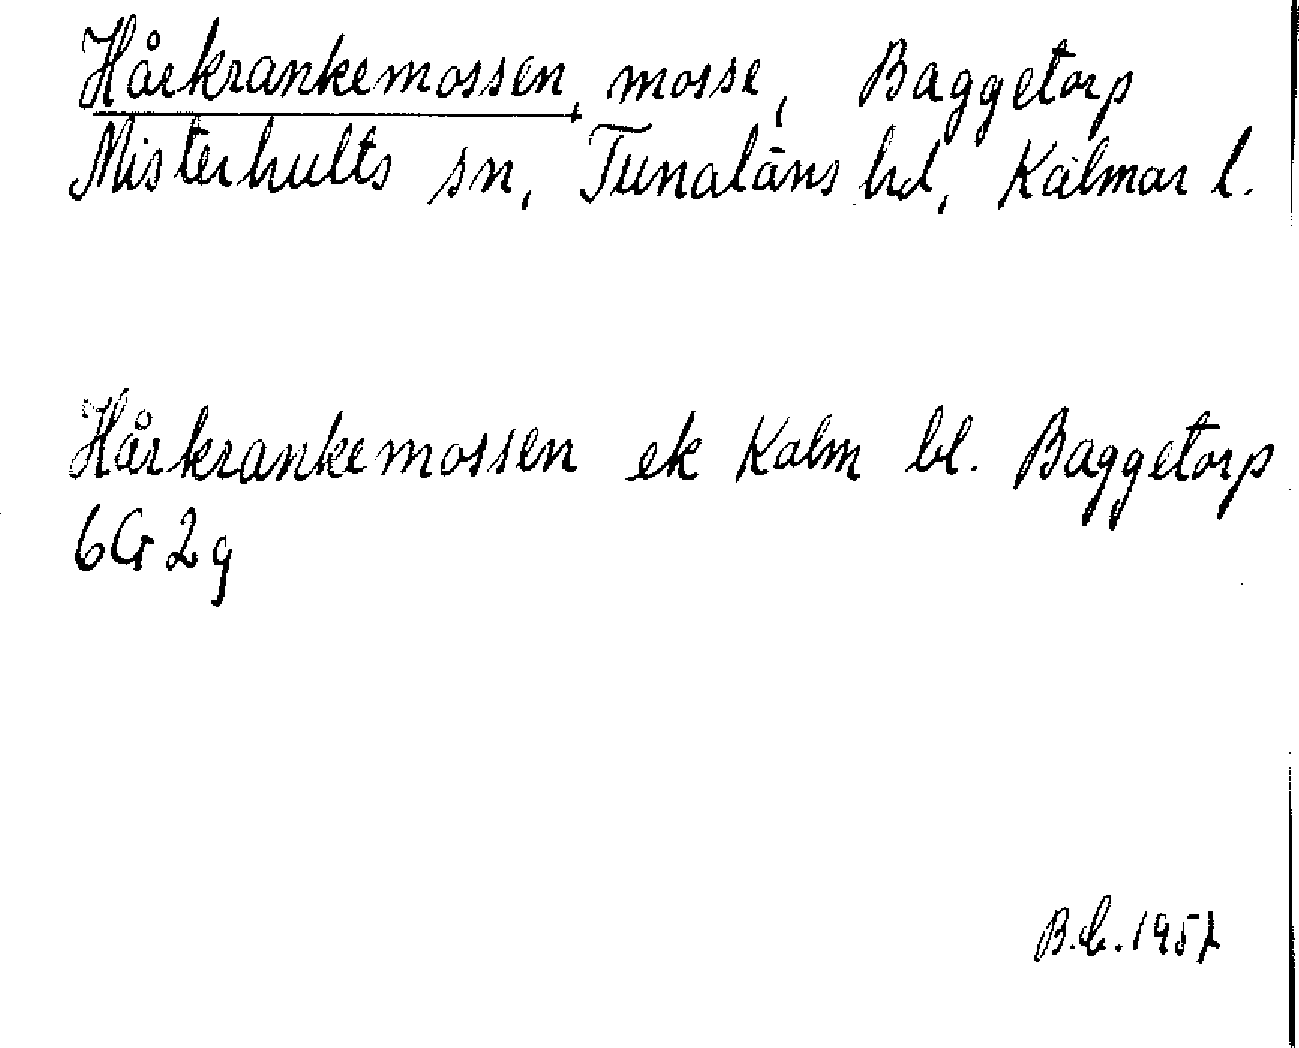 Hårkrankemossen, mosse, Baggetorp
Misterhults sn, Tunaläns hd, Kalmar l.
Hårkrankemossen ek Kalm bl. Baggetorp
6G 2g
1957